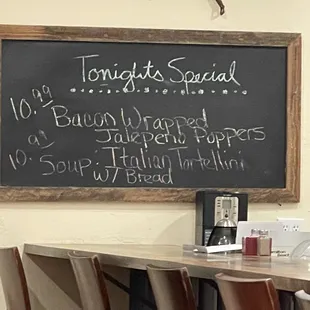 Tonights Special
10.99 Bacon Wrapped
Jalepeno Poppers
10.99 Soup: Italian Tartellini
w/ Bread